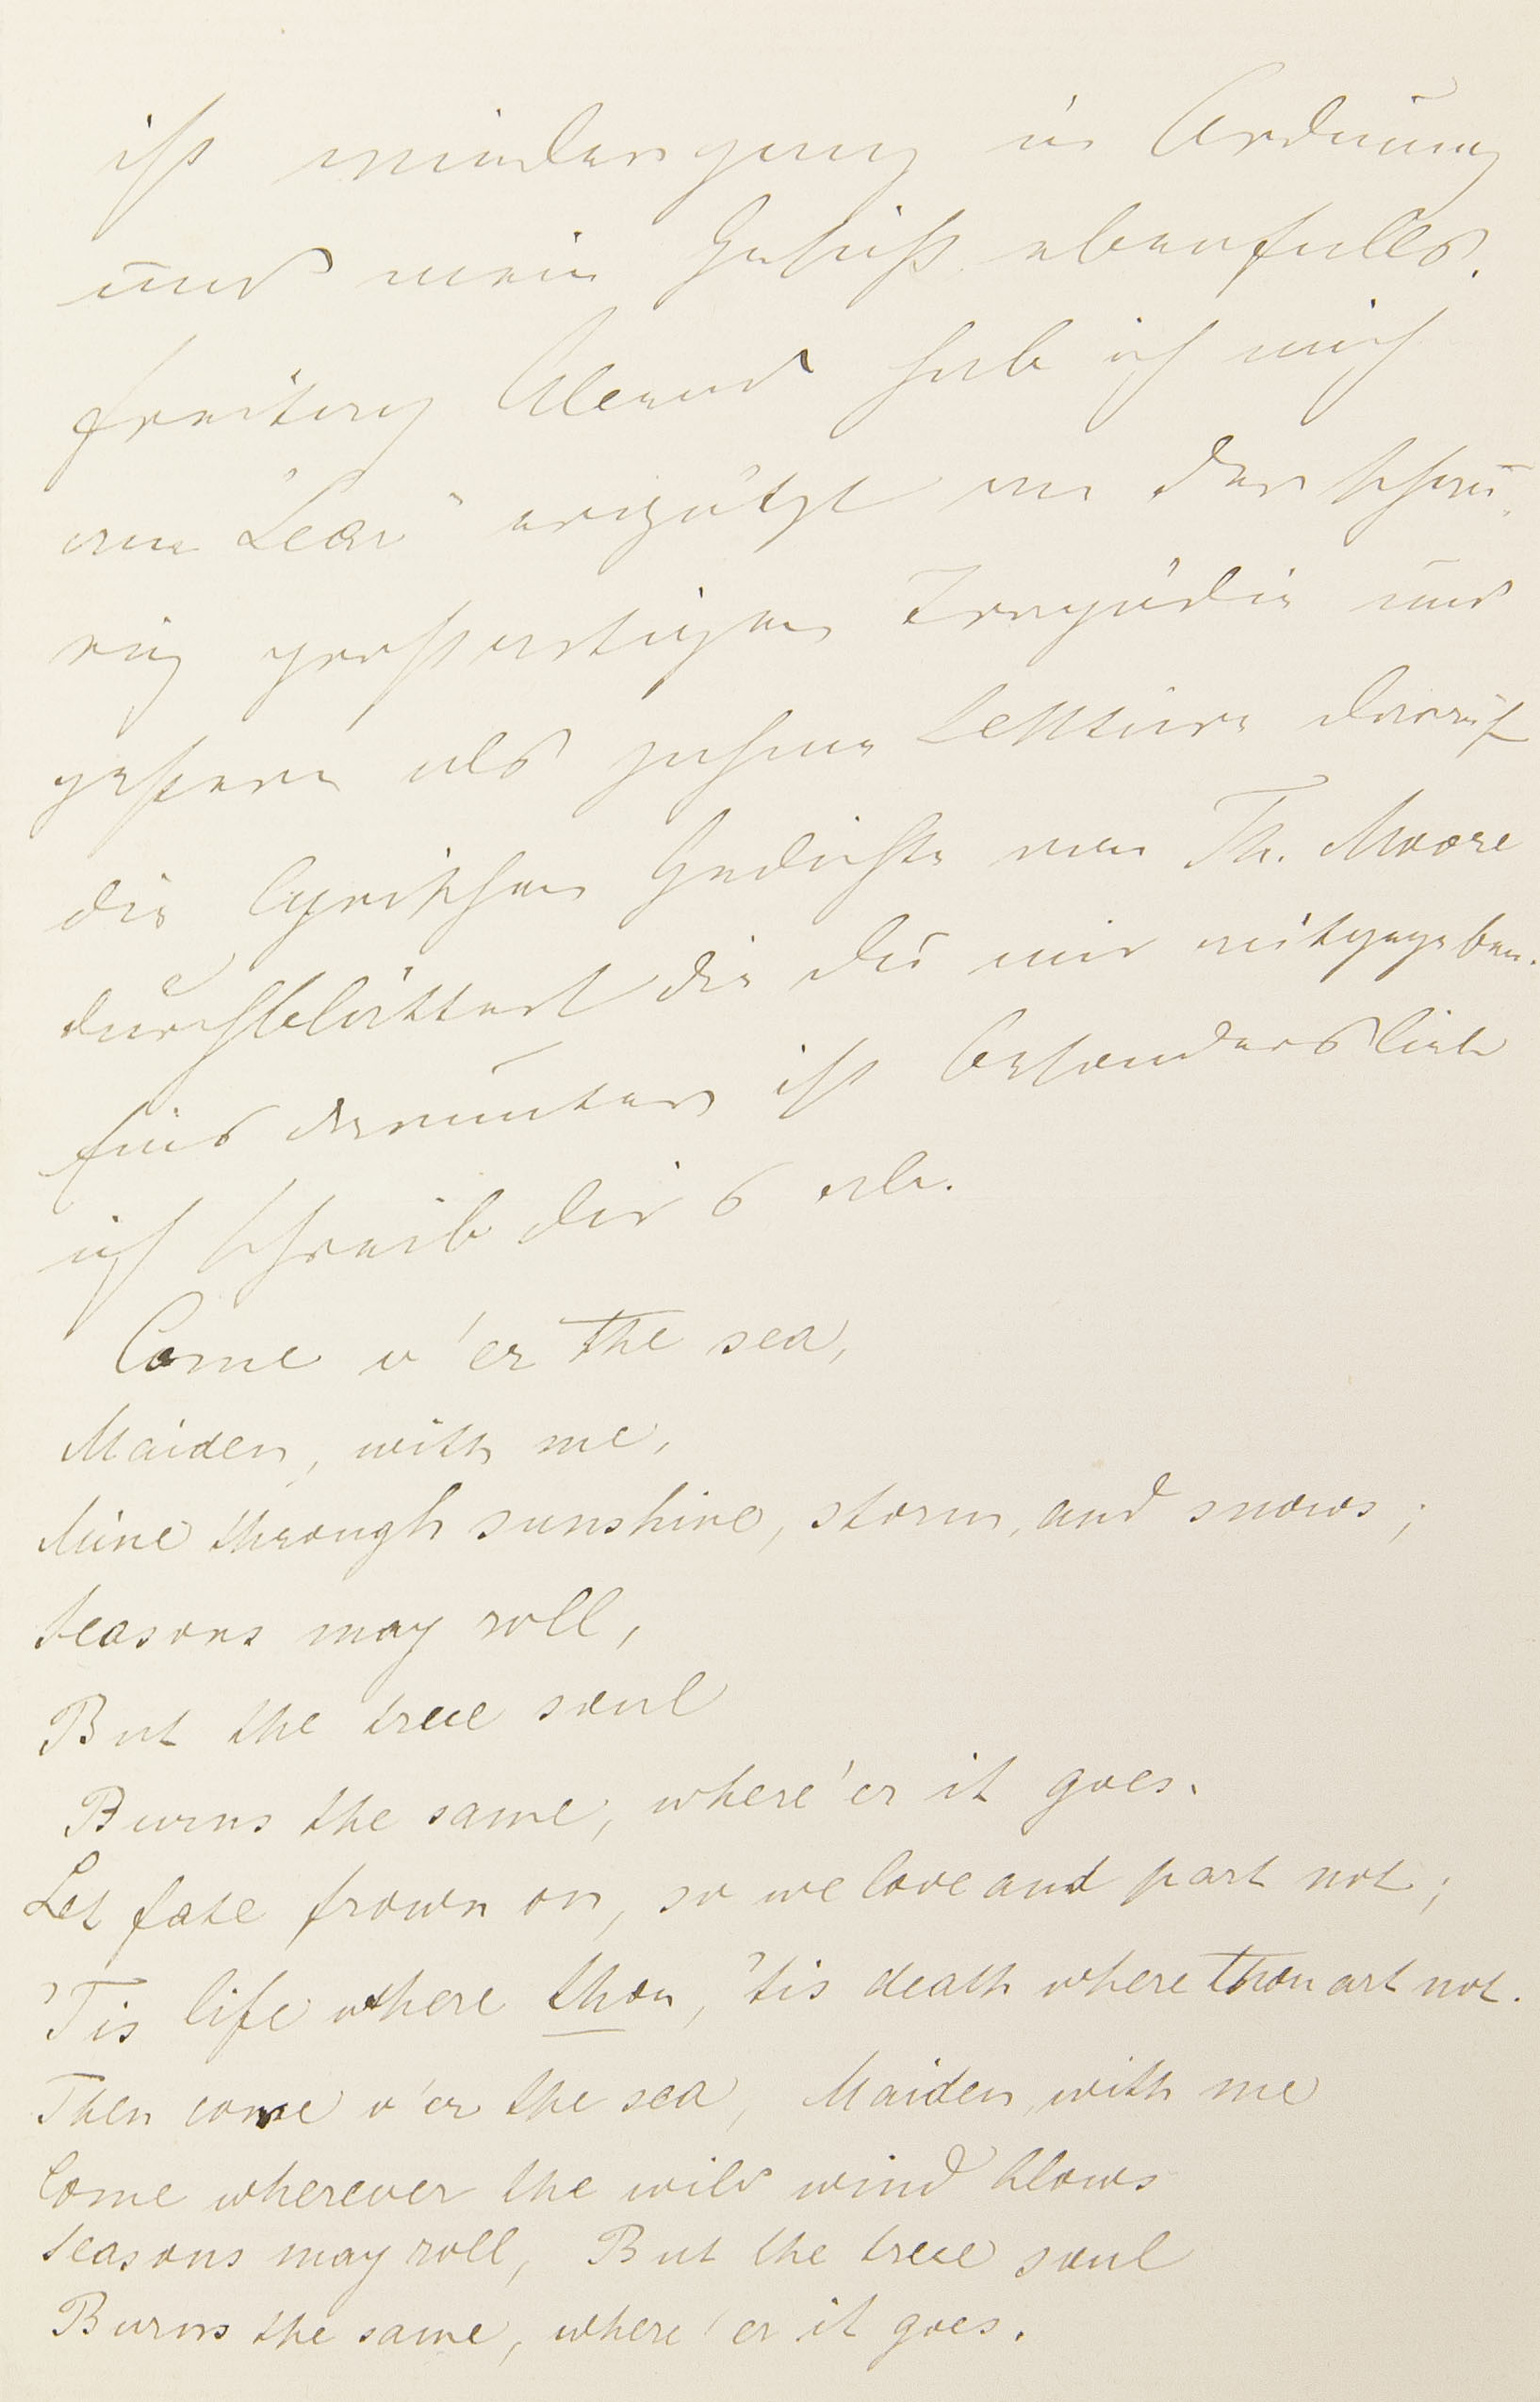 ist wieder ganz in Ordnung
und mein Gesicht ebenfalls.
Freitag Abend hab ich mich
am „Lear" ergötzt an der schau
rig großartigen Tragödie und
gestern als zahme Lektüre darauf
die lyrischen Gedichte von Th. Moore
durchblättert die du mir mitgegeben.
Eins darunter ist besonders lieb
ich schreib dir's ab.
Come o'er the sea,
Maiden, with me,
Mine through sunshine, storm, and snows;
Seasons may roll,
But the true soul
Burns the same, where'er it goes.
Let fate frown on, so we love and part not;
'Tis life where thou, 'tis death where thou art not.
Then come o'er the sea, Maiden, with me
Come wherever the wild wind blows
Seasons may roll, But the true soul
Burns the same, where'er it goes.